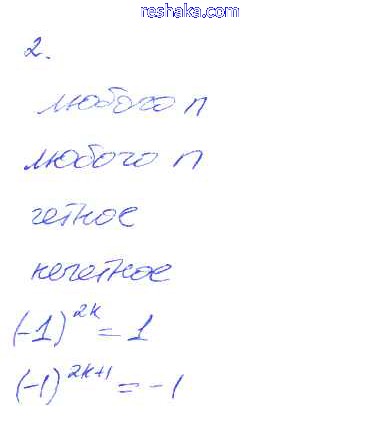 reshaka.com
2.
любого n
любого n
четное
нечетное
(-1)^{2k} = 1
(-1)^{2k+1} = -1